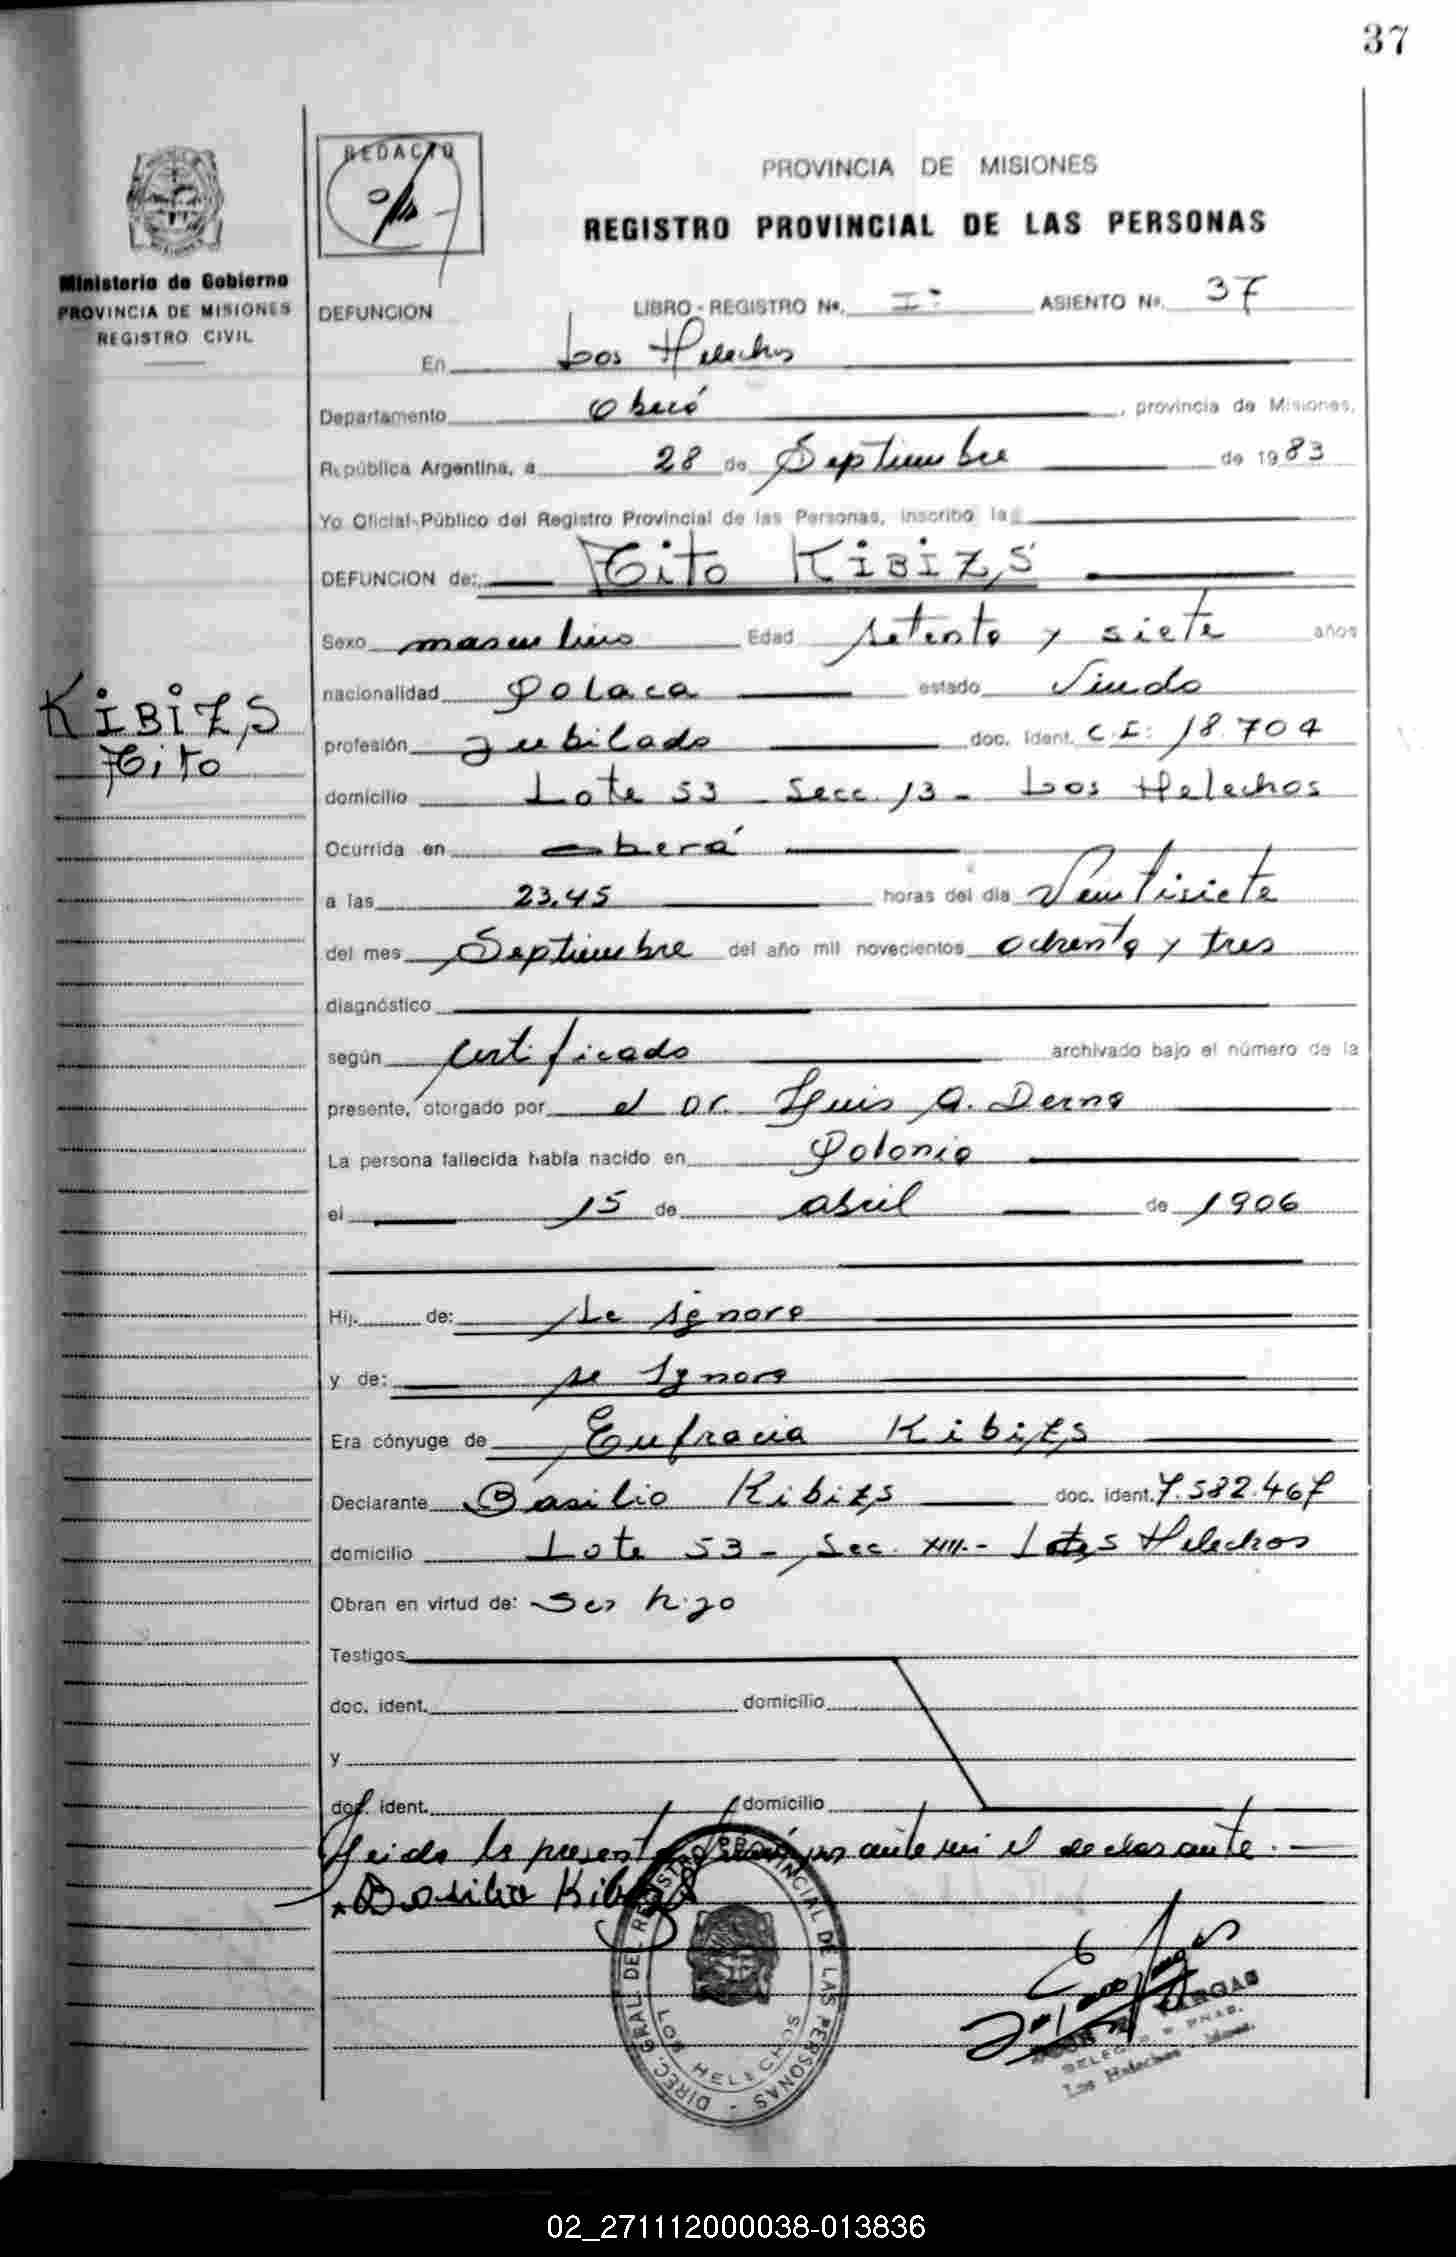 37
REDACTO
PROVINCIA DE MISIONES
REGISTRO PROVINCIAL DE LAS PERSONAS
Ministerio de Gobierno
PROVINCIA DE MISIONES
REGISTRO CIVIL
DEFUNCION LIBRO - REGISTRO Nº. I: ASIENTO Nº. 37
En Los Helechos
Departamento Oberá, provincia de Misiones,
República Argentina, a 28 de Septiembre de 1983
Yo Oficial Público del Registro Provincial de las Personas, inscribo la
DEFUNCION de: Tito KIBIZS
Sexo masculino Edad setenta y siete años
nacionalidad Polaca estado Viudo
KIBIZS
Tito
profesión Jubilado doc. ident. C.I: 18.704
domicilio Lote 53 - Secc. 13 - Los Helechos
Ocurrida en oberá
a las 23,45 horas del día Veintisiete
del mes Septiembre del año mil novecientos ochenta y tres
diagnóstico
según certificado archivado bajo el número de la
presente, otorgado por el Dr. Luis A. Derna
La persona fallecida había nacido en Polonia
el 15 de abril de 1906
Hij. de: se ignora
y de: se Ignora
Era cónyuge de Eufracia Kibizs
Declarante Basilio Kibizs doc. ident. 7.582.467
domicilio Lote 53 - Sec. XIII. - Helechos
Obran en virtud de: Ser hijo
Testigos
doc. ident. domicilio
y
doc. ident. domicilio
Leida la presente ante mi el declarante. -
Basilio Kibizs
DIREC. GRAL. DEL REGISTRO PROVINCIAL DE LAS PERSONAS -
LOS HELECHOS
VARGAS
Los Helechos - Mnes.
02_271112000038-013836